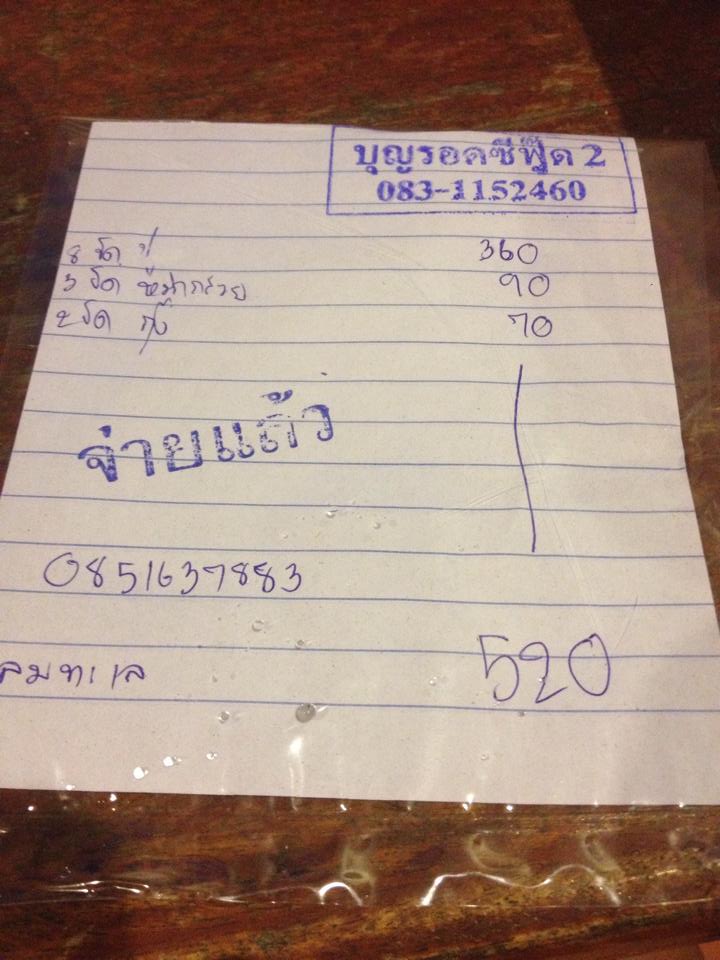 บุญรอดซีฟู๊ด 2
083-1152460
8 ขีด ปู 360
3 ขีด หมึกกล้วย 90
2 ขีด กุ้ง 70
จ่ายแล้ว
0851637883
ลมทะเล 520